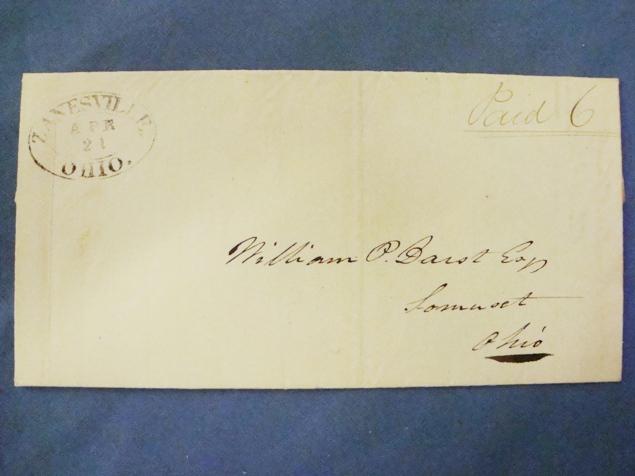 ZANESVILLE.
APR
21
OHIO.
Paid 6
William P. Darst Esq
Somerset
Ohio